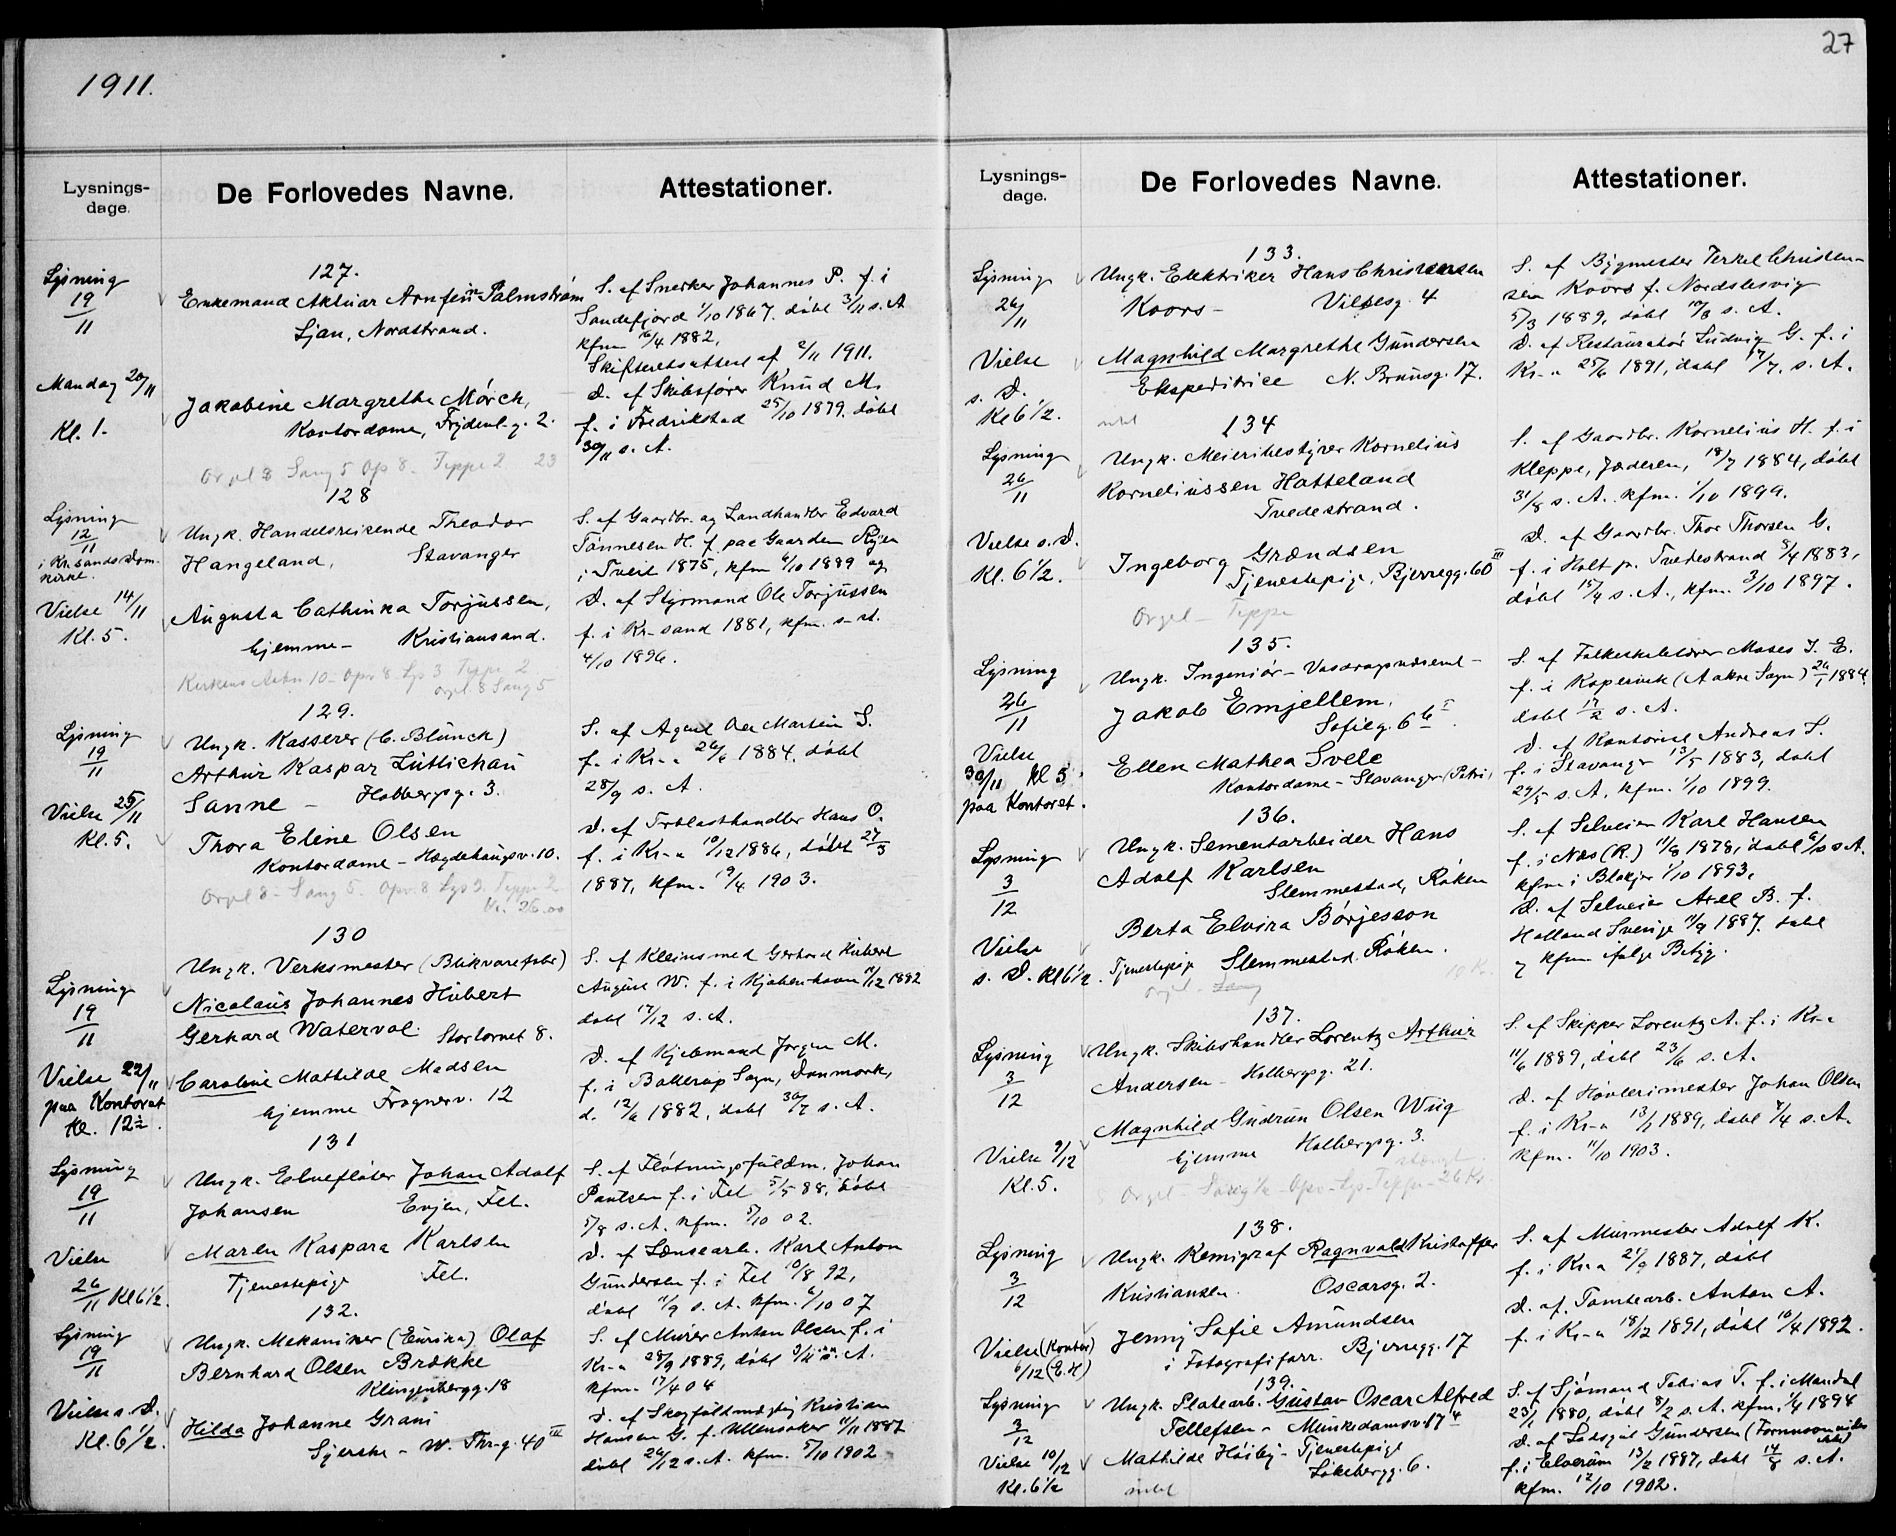 1911.
27
Lysnings-
dage.
De Forlovedes Navne.
Attestationer.
127.
Lysning
19/11
Enkemand Aktuar Arnfinn Palmstrøm
Ljan, Nordstrand.
S. af Snedker Johannes P. f. i
Sandefjord 1/10 1867. døbt 3/11 s. A.
kfm. 16/4 1882.
Skifteretsattest af 2/11 1911.
Mandag 20/11
Kl. 1.
Jakobine Margrethe Mørch,
Kontordame, Frydenl.g. 2.
D. af Skibsfører Knud M.
f. i Fredrikstad 25/10 1879. døbt
30/11 s. A.
Orgel 8 Sang 5 Op 8 - Teppe 2 23
128
Lysning
12/11
i Kr.sands Dom-
kirke.
Ungk. Handelsreisende Theodor
Hangeland, Stavanger
S. af Gaardbr. og Landhandler Edvard
Tønnesen H. f. paa Gaarden Ryen
i Tveit 1875, kfm 6/10 1889 og
Vielse 14/11
Kl. 5.
Augusta Cathinka Torjussen,
hjemme - Kristiansand.
D. af Styrmand Ole Torjussen
f. i Kr-sand 1881, kfm. s. st.
4/10 1896.
Orgel 8 Sang 5
129.
Lysning
19/11
Ungk. Kasserer (C. Blunch)
Arthur Kaspar Lüttichau
Sanne - Holbergsg. 3.
S. af Agent Martin S.
f. i Kr-a 26/6 1884. døbt
28/9 s. A.
Vielse 25/11
Kl. 5.
Thora Eline Olsen
Kontordame - Hægdehaugsv. 10.
D. af Trælasthandler Hans O.
f. i Kr-a 10/12 1886, døbt 27/3
1887, kfm. 19/4 1903.
Orgel 8 - Sang 5. Opv. 8 Lys 3. Teppe 2
Kr. 26.00
130
Lysning
19/11
Ungk. Verksmester (Blikvarefabr)
Nicolaus Johannes Hubert
Gerhard Waterval. Stortorvet 8.
S. af Kleinsmed Gerhard Hubert
August W. f. i Kjøbenhavn 11/12 1882
døbt 17/12 s. A.
Vielse 22/11
paa Kontoret
Kl. 12½.
Caroline Mathilde Madsen
hjemme Frognerv. 12
D. af Kjøbmand Jørgen M.
f. i Ballerup Sogn, Danmark,
d. 12/6 1882, døbt 30/7 s. A.
131
Lysning
19/11
Ungk. Elvefløter Johan Adolf
Johansen Evjen, Fet.
S. af Fløtningsfuldm. Johan
Paulsen f. i Fet 5/5 88, døbt
5/8 s. A. kfm. 5/10 02.
Vielse
26/11 Kl 6½.
Maren Kaspara Karlsen
Tjenestepige Fet.
D. af Lænsearb. Karl Anton
Gundersen f. i Fet 10/8 92,
døbt 11/9 s. A. kfm. 6/10 07
132.
Lysning
19/11
Ungk. Mekaniker (Eurika) Olaf
Bernhard Olsen Brække
Klingenbergg. 18
S. af Murer Anton Olsen f. i
Kr-a 28/9 1889, døbt 3/11 s. A.
kfm. 17/4 04
Vielse s. D.
Kl. 6½.
Hilda Johanne Grani
Syerske - W. Thr.g. 40 III
D. af Skogfuldmægtig Kristian
Hansen G. f. Ullensaker 11/11 1887
døbt 26/12 s. A. kfm. 5/10 1902
Lysnings-
dage.
De Forlovedes Navne.
Attestationer.
133.
Lysning
26/11
Ungk. Elektriker Hans Christensen
Koors - Vibesg. 4
S. af Bygmester Terkel Christen-
sen Koors f. Nordslesvig
5/3 1889, døbt 10/3 s. A.
Vielse
s. D.
Kl 6½.
Magnhild Margrethe Gundersen
Ekspeditrice N. Brunsg. 17.
D. af Restauratør Ludvig G. f. i
Kr-a 25/6 1891, døbt 17/7. s. A.
134
Lysning
26/11
Ungk. Meieribestyrer Kornelius
Korneliussen Hatteland
Tvedestrand.
S. af Gaardbr. Kornelius H. f. i
Kleppe, Jæderen, 18/7 1884, døbt
31/8 s. A. kfm. 1/10 1899.
Vielse s. D.
Kl. 6½.
Ingeborg Grændsen
Tjenestepige, Bjerregg. 60 III
D. af Gaardbr. Thor Thorsen G.
f. i Holt pr. Tvedestrand 8/4 1883,
døbt 15/4 s. A., kfm. 3/10 1897.
Orgel - Teppe
135.
Lysning
26/11
Ungk. Ingeniør - Vasdragsvæsenet -
Jakob Emjellem,
Sofieg. 66 I
S. af Folkeskolelærer Moses J. E.
f. i Kopervik (Aakre Sogn) 26/1 1884.
døbt 17/2 s. A.
Vielse
30/11 Kl 5.
paa Kontoret.
Ellen Mathea Svele
Kontordame - Stavanger (Petri)
D. af Kontorist Andreas S.
f. i Stavanger 13/5 1883, døbt
29/5 s. A. kfm. 1/10 1899.
136.
Lysning
3/12
Ungk. Sementarbeider Hans
Adolf Karlsen
Slemmestad, Røken
S. af Selveier Karl Hansen
f. i Næs (R.) 11/8 1878, døbt s. A.
kfm i Blakjer 1/10 1893.
Vielse
s. D. Kl 6½.
Berta Elvira Børjesson
Tjenestepige Slemmestad, Røken.
D. af Selveier Axel B. f.
Halland Sverige 11/9 1887, døbt
og kfm ifølge Betyg.
Orgel - Sang
10 K.
137.
Lysning
3/12
Ungk. Skibshandler Lorentz Arthur
Andersen - Holbergsg. 21.
S. af Skipper Lorentz A. f. i Kr-a
11/6 1889, døbt 23/6 s. A.
Vielse 9/12
Kl. 5.
Magnhild Gudrun Olsen Wiig
hjemme Holbergsg. 3.
D. af Høvlerimester Johan Olsen
f. i Kr-a 13/1 1889, døbt 7/4 s. A.
kfm. 11/10 1903.
Orgel - Sang ½ - Opv - Lys - Teppe - 26 Kr.
138.
Lysning
3/12
Ungk. Kemigraf Ragnvald Kristoffer
Kristiansen. Oscarsg. 2.
S. af Murmester Adolf K.
f. i Kr-a 27/9 1887, døbt
Vielse (Kontor)
6/12 (E.H)
Jenny Sofie Amundsen
i Fotografiforr. Bjerregg. 17
D. af Tomtearb. Anton A.
f. i Kr-a 18/12 1891, døbt 10/4 1892.
139.
Lysning
3/12
Ungk. Platearb. Gustav Oscar Alfred
Tellefsen - Munkedamsv. 17 4
S. af Sjømand Tobias T. f. i Mandal
23/1 1880, døbt 8/2 s. A. kfm. 1/4 1894
Vielse 10/12
Kl. 6½
Mathilde Høiby - Tjenestepige
Løkkebergg. 6.
D. af Gundersen
f. i Elverum 13/2 1887, døbt 14/8 s. A.
kfm. 12/10 1902.